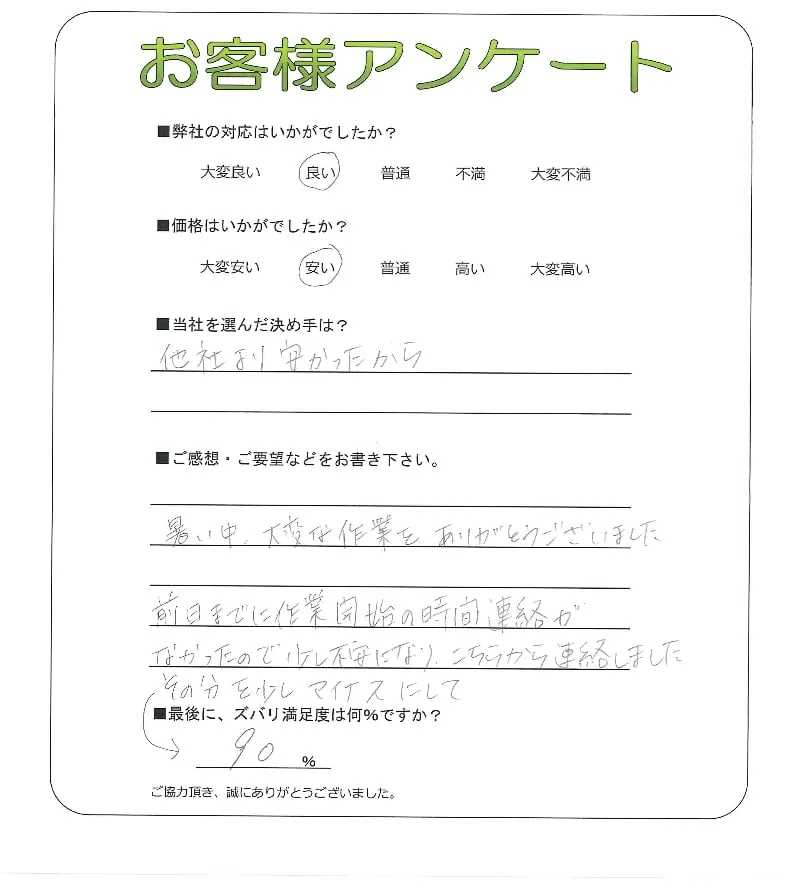 お客様アンケート
■弊社の対応はいかがでしたか？
大変良い 良い 普通 不満 大変不満
■価格はいかがでしたか？
大変安い 安い 普通 高い 大変高い
■当社を選んだ決め手は？
他社より安かったから
■ご感想・ご要望などをお書き下さい。
暑い中、大変な作業をありがとうございました
前日までに作業開始の時間連絡が
なかったので少し不安になり、こちらから連絡しました
その分を少しマイナスにして
■最後に、ズバリ満足度は何%ですか？
90 %
ご協力頂き、誠にありがとうございました。